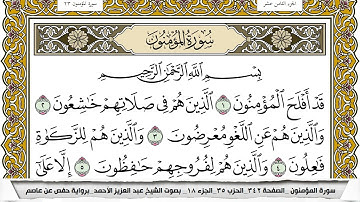 الجزء الثامن عشر
سورة المؤمنون ٢٣
سُورَةُ الْمُؤْمِنُونَ
بِسْمِ اللَّهِ الرَّحْمَٰنِ الرَّحِيمِ
قَدْ أَفْلَحَ الْمُؤْمِنُونَ ١ الَّذِينَ هُمْ فِي صَلَاتِهِمْ خَاشِعُونَ ٢
وَالَّذِينَ هُمْ عَنِ اللَّغْوِ مُعْرِضُونَ ٣ وَالَّذِينَ هُمْ لِلزَّكَاةِ
فَاعِلُونَ ٤ وَالَّذِينَ هُمْ لِفُرُوجِهِمْ حَافِظُونَ ٥ إِلَّا عَلَىٰ
سورة المؤمنون _الصفحة ٣٤٢_ الحزب ٣٥_ الجزء ١٨_ بصوت الشيخ عبد العزيز الأحمد_ برواية حفص عن عاصم